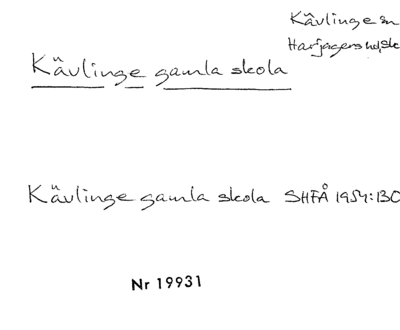 Kävlinge sn
Harjagers hd, Sk
Kävlinge gamla skola
Kävlinge gamla skola SHFÅ 1954:130
Nr 19931